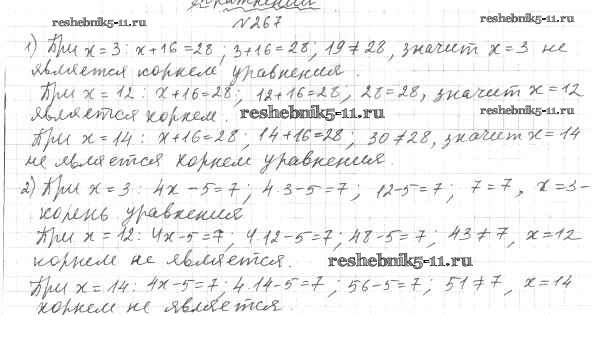 reshebnik5-11.ru № 267 reshebnik5-11.ru
1) При x = 3: x+16=28; 3+16=28; 19≠28, значит x=3 не
является корнем уравнения.
При x = 12: x+16=28; 12+16=28; 28=28, значит x=12
является корнем. reshebnik5-11.ru reshebnik5-11.ru
При x = 14: x+16=28; 14+16=28; 30≠28, значит x=14
не является корнем уравнения.
2) При x = 3: 4x-5=7; 4·3-5=7; 12-5=7; 7=7, x=3-
корень уравнения
При x = 12: 4x-5=7; 4·12-5=7; 48-5=7; 43≠7, x=12
корнем не является. reshebnik5-11.ru
При x=14: 4x-5=7; 4·14-5=7; 56-5=7; 51≠7, x=14
корнем не является.